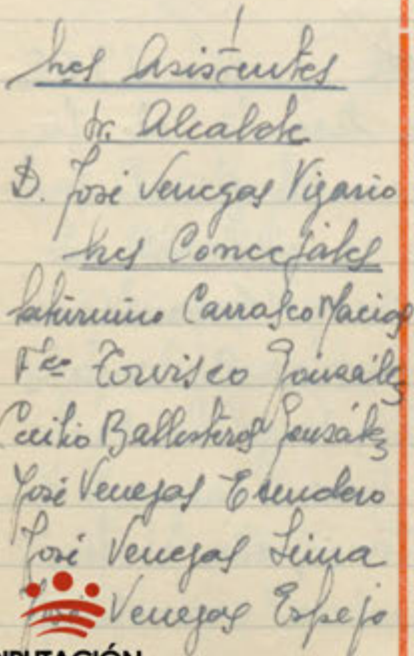 Sres Asistentes
Sr. Alcalde
D. José Venegas Vizario
Sres Concejales
Saturnino Carrasco Macias
Fco Torvisco González
Cecilio Ballesteros González
José Venegas Escudero
José Venegas Sema
José Venegas Espejo
DIPUTACIÓN